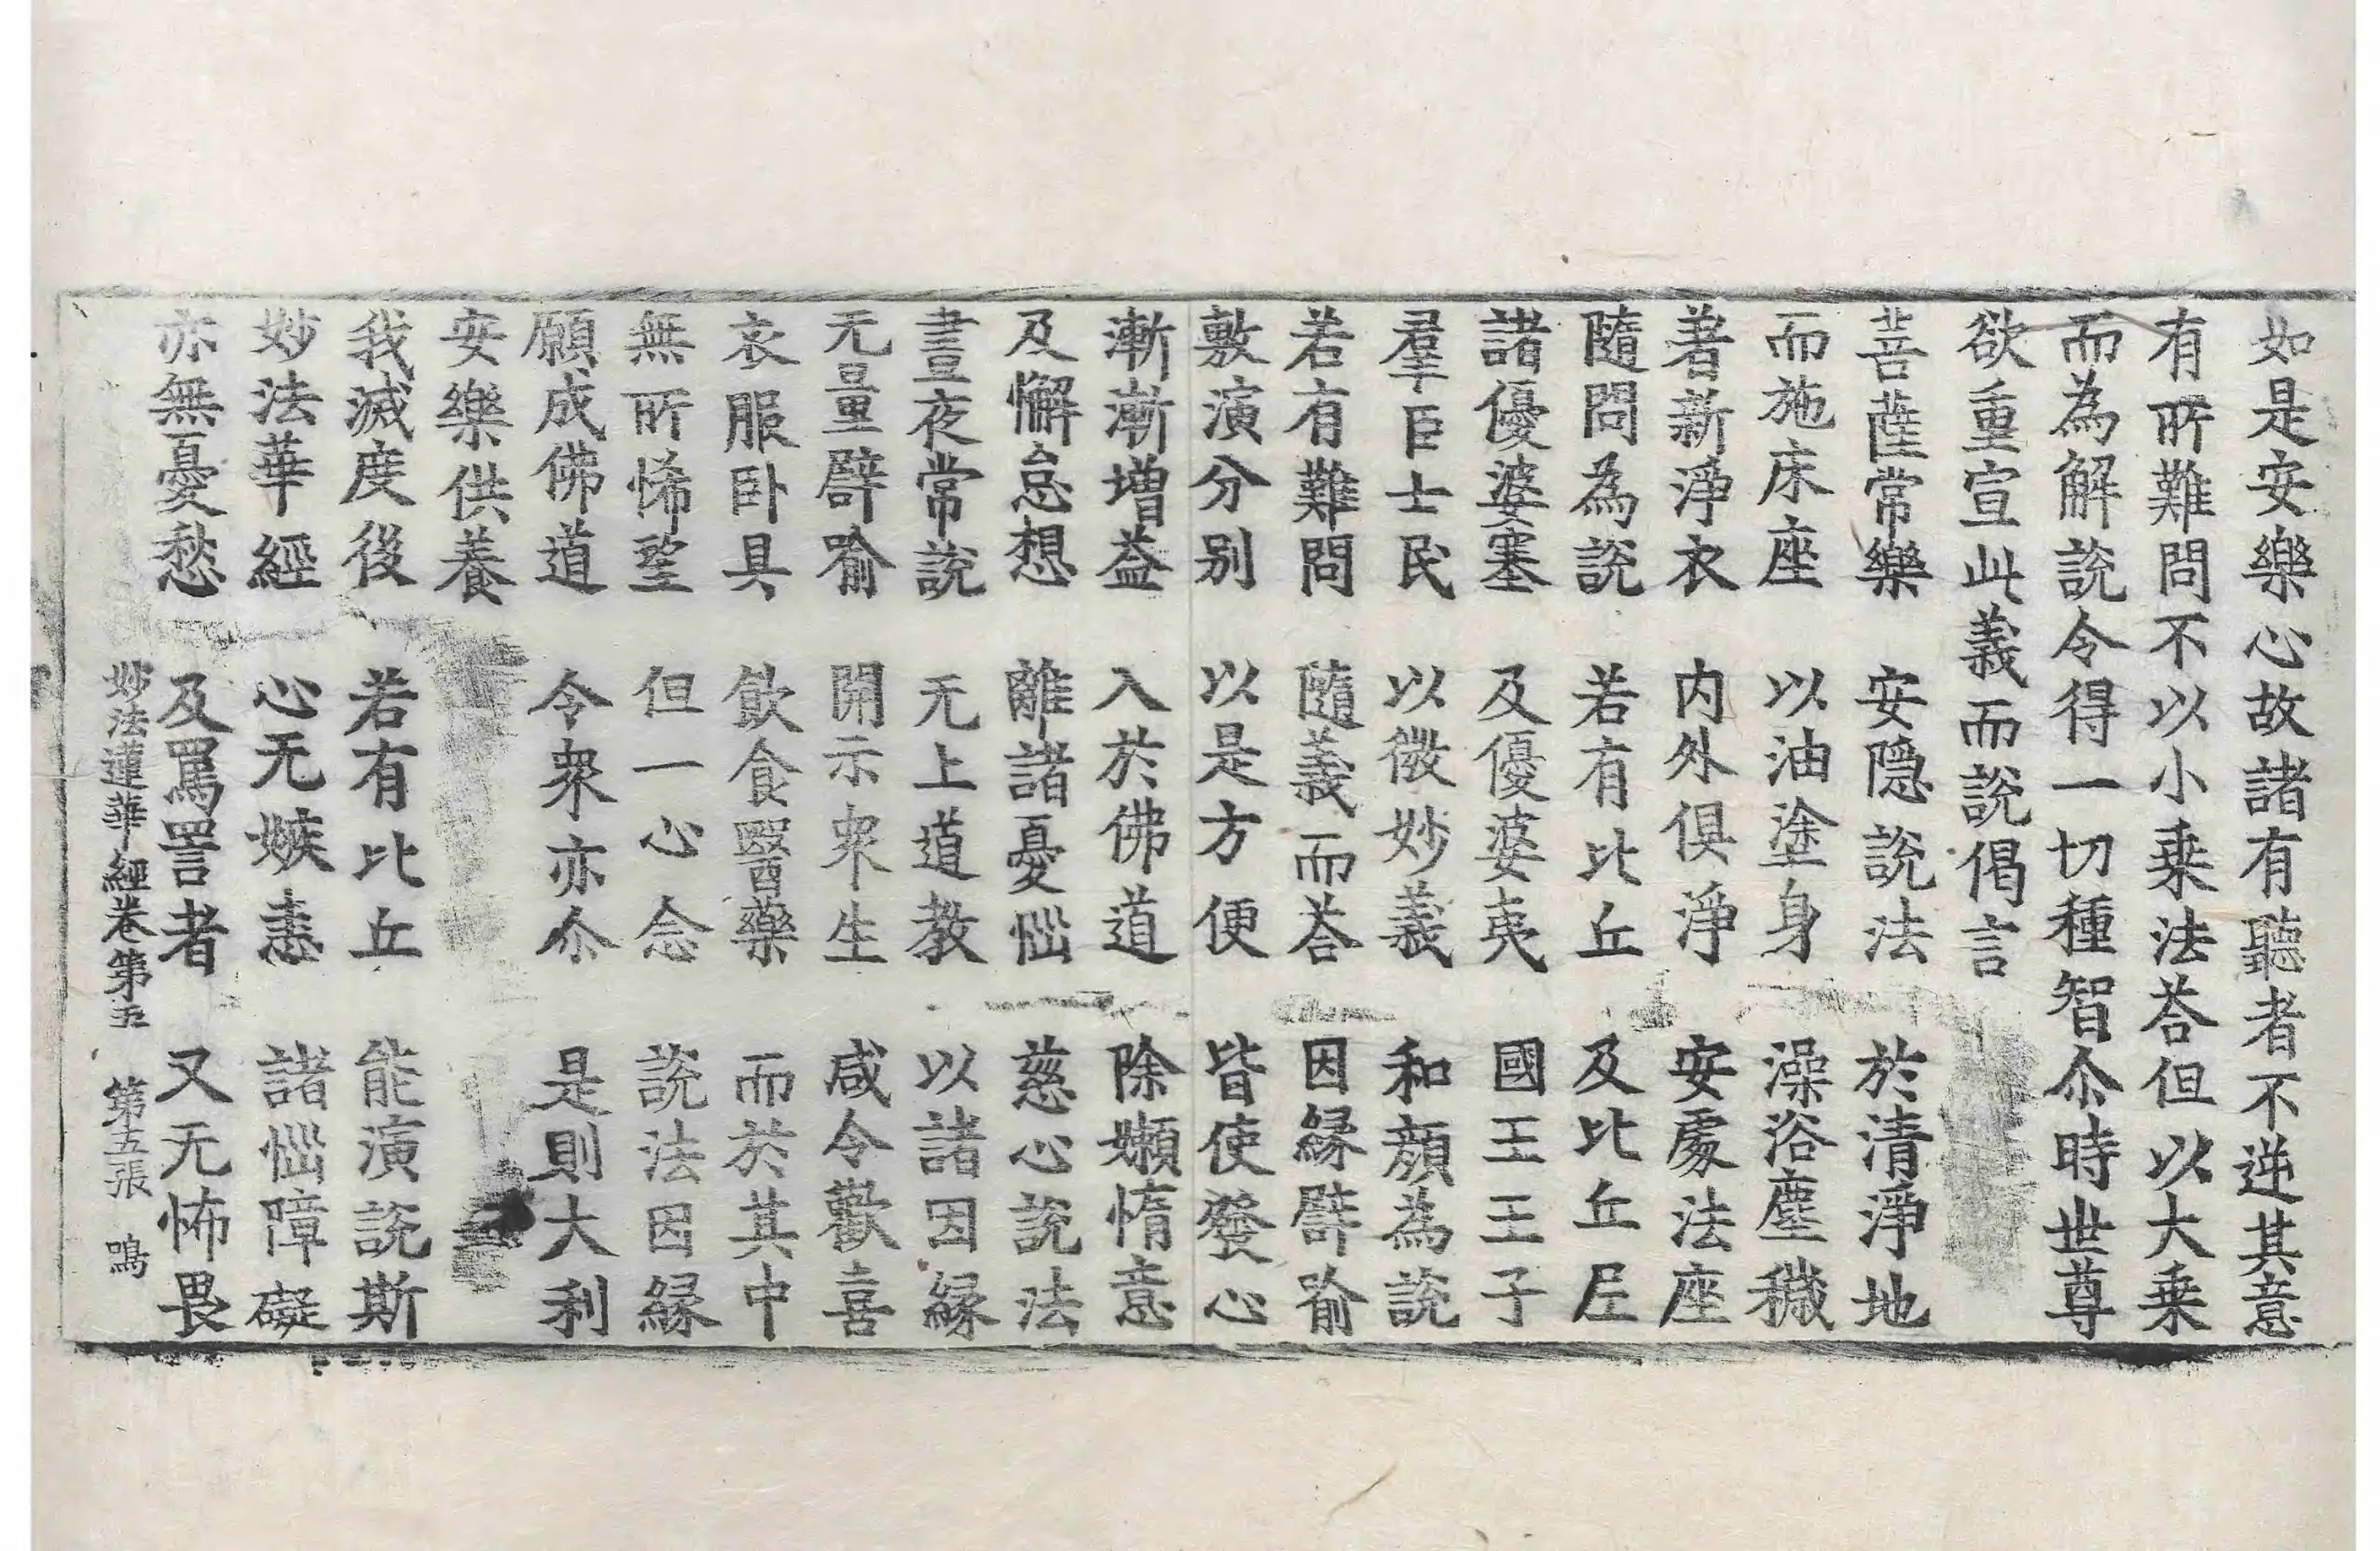 如是安樂心故諸有聽者不逆其意
有所難問不以小乗法荅但以大乗
而為解說令得一切種智尒時世尊
欲重宣此義而說偈言
菩薩常樂　安隱說法　於清淨地
而施床座　以油塗身　澡浴塵穢
著新淨衣　内外俱淨　安處法座
隨問為說　若有比丘　及比丘尼
諸優婆塞　及優婆夷　國王王子
羣臣士民　以微妙義　和顔為說
若有難問　隨義而荅　因緣譬喻
敷演分別　以是方便　皆使發心
漸漸增益　入於佛道　除嬾惰意
及懈怠想　離諸憂惱　慈心說法
晝夜常說　无上道教　以諸因緣
无量譬喻　開示衆生　咸令歡喜
衣服卧具　飲食醫藥　而於其中
無所悕望　但一心念　說法因緣
願成佛道　令衆亦尒　是則大利
安樂供養
我滅度後　若有比丘　能演說斯
妙法華經　心无嫉恚　諸惱障礙
亦無憂愁　及罵詈者　又无怖畏
妙法蓮華經卷第五　第五張　鳴